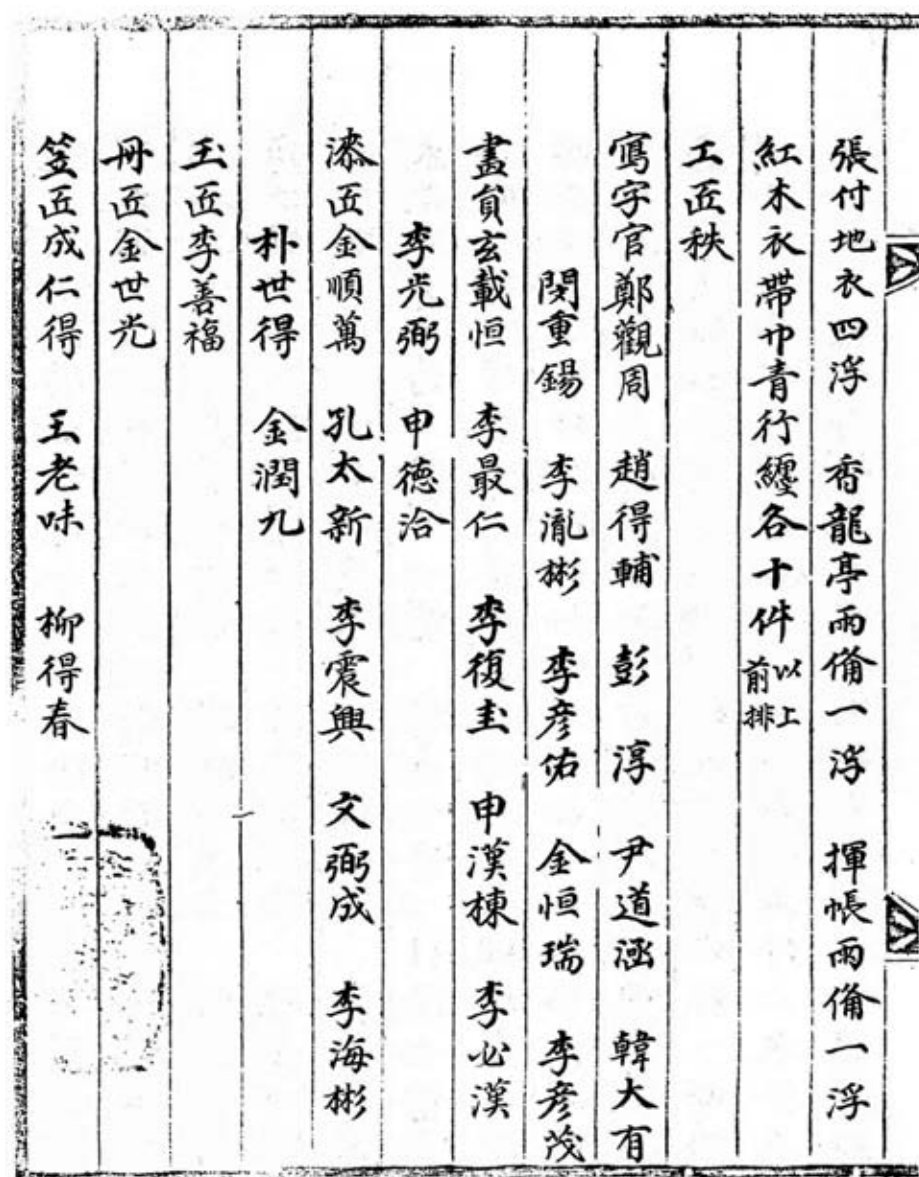 張付地衣四浮 香龍亭雨備一浮 揮帳雨備一浮
紅木衣帶巾青行纏各十件 以上前排
工匠秩
寫字官鄭觀周 趙得輔 彭淳 尹道涵 韓大有
閔重錫 李胤彬 李彦佑 金恒瑞 李彦茂
畵負玄載恒 李最仁 李復圭 申漢棟 李必漢
李光弼 申德洽
漆匠金順萬 孔太新 李震興 文弼成 李海彬
朴世得 金潤九
玉匠李善福
冊匠金世光
笠匠成仁得 王老味 柳得春